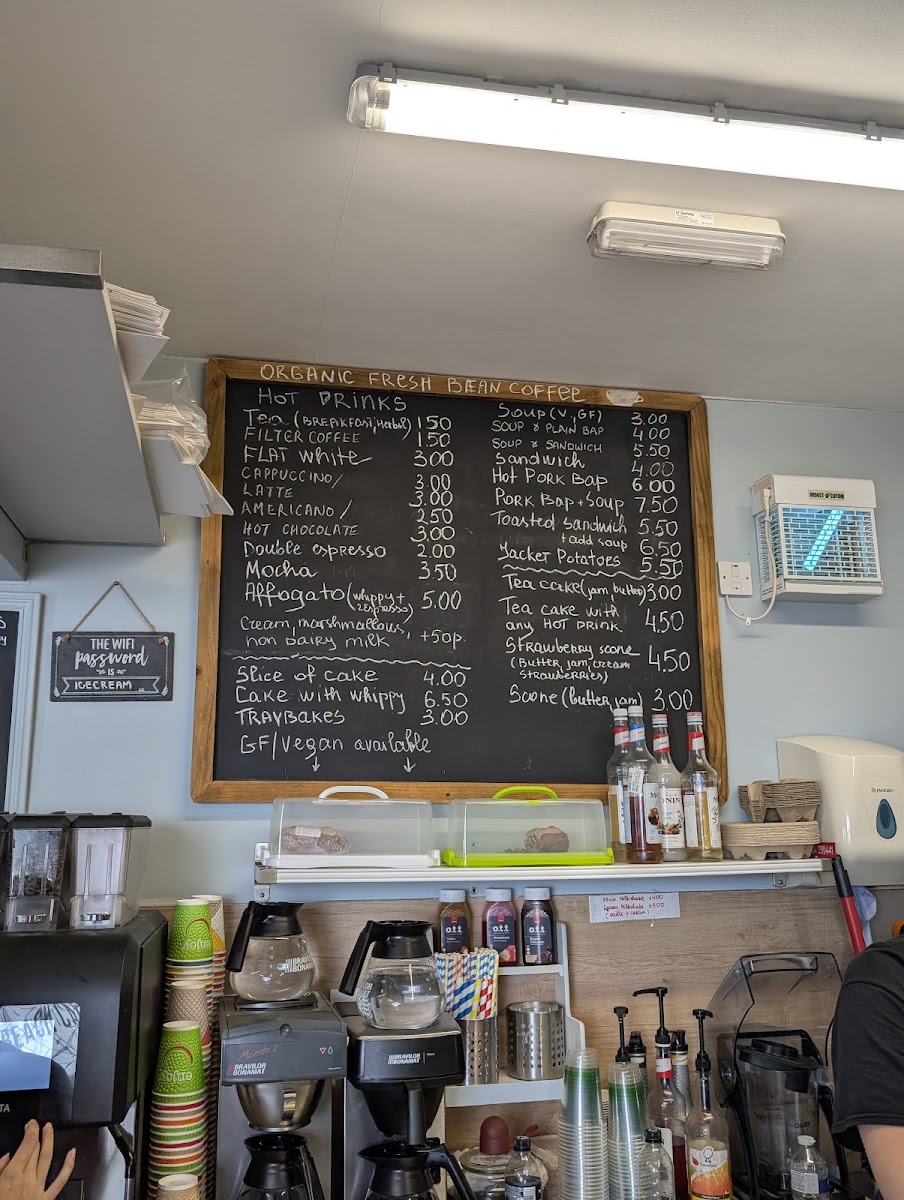 ORGANIC FRESH BEAN COFFEE
HOT DRINKS
Tea (BREAKFAST, Herbal) 1.50
FILTER COFFEE 1.50
FLAT white 3.00
CAPPUCCINO/ 3.00
LATTE 3.00
AMERICANO / 2.50
HOT CHOCOLATE 3.00
Double espresso 2.00
Mocha 3.50
Affogato (whippy + 2 espresso) 5.00
Cream, marshmallows,
non dairy milk +50p.
Slice of cake 4.00
Cake with whippy 6.50
TRAYBAKES 3.00
GF/Vegan available
Soup (V, GF) 3.00
SOUP & PLAIN BAP 4.00
SOUP & SANDWICH 5.50
Sandwich 4.00
Hot PORK BAP 6.00
PORK BAP + SOUP 7.50
Toasted sandwich 5.50
+ add soup 6.50
Jacket Potatoes 5.50
Tea cake (jam, butter) 3.00
Tea cake with
any HOT DRINK 4.50
Strawberry scone
(Butter, jam, cream 4.50
strawberries)
Scone (butter jam) 3.00
THE WIFI
password
IS
ICECREAM
INSECT-O-CUTOR
JANGRO
MONIN
o.t.t
o.t.t
BRAVILOR
BONAMAT
Mondo 2
BRAVILOR
BONAMAT
BRAVILOR
BONAMAT